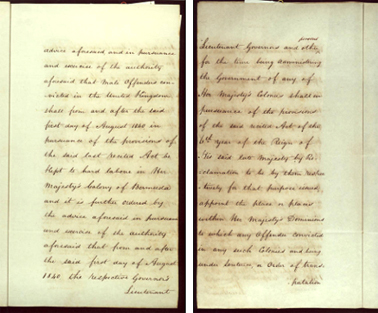 advice aforesaid and in pursuance
and exercise of the authority
aforesaid that Male Offenders con-
victed in the United Kingdom
shall from and after the said
first day of August 1840 in
pursuance of the provisions of
the said last recited Act be
Kept to hard labour in Her
Majesty's Colony of Bermuda
and it is further ordered by
the advice aforesaid in pursuance
and exercise of the authority
aforesaid that from and after
the said first day of August
1840 the respective Governors
Lieutenant
persons
Lieutenant Governors and other
for the time being administering
the Government of any of
Her Majesty's Colonies shall in
pursuance of the provisions
of the said recited Act of the
6th year of the Reign of
His said late Majesty by Pro-
clamation to be by them respec-
tively for that purpose issued,
appoint the place or places
within Her Majesty's Dominions
to which any Offender convicted
in any such Colonies and being
under Sentence or Order of trans-
portation